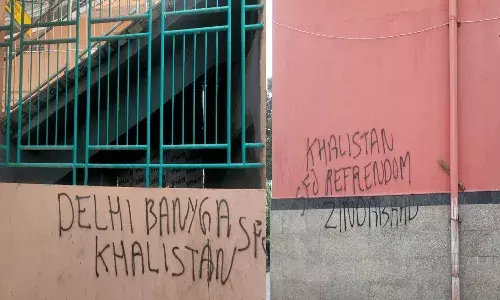 DELHI BANYGA
SFJ
KHALISTAN
KHALISTAN
SFJ REFRENDUM
ZINDABAAD